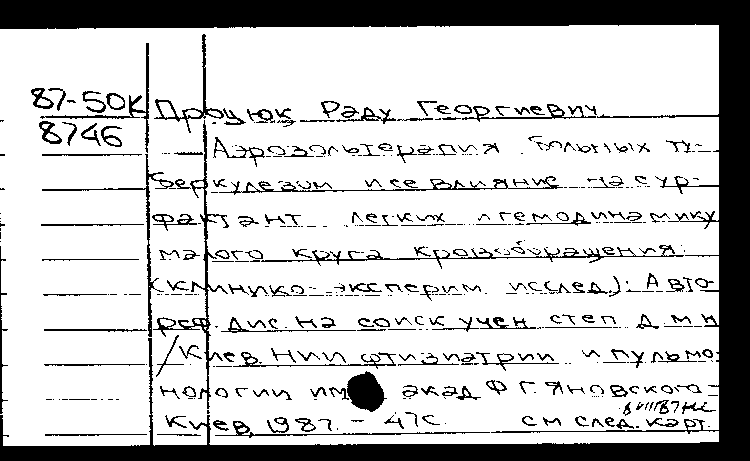 87-50К
8746
Процюк Раду Георгиевич
Аэрозольтерапия больных ту-
беркулезом и ее влияние на сур-
фактант легких и гемодинамику
малого круга кровообращения:
(клинико-эксперим исслед.): Авто-
реф. дис. на соиск учен степ д м н
/Киев. НИИ фтизиатрии и пульмо-
нологии им акад Ф Г. Яновского-
Киев, 1987. - 47с.
см след. карт.